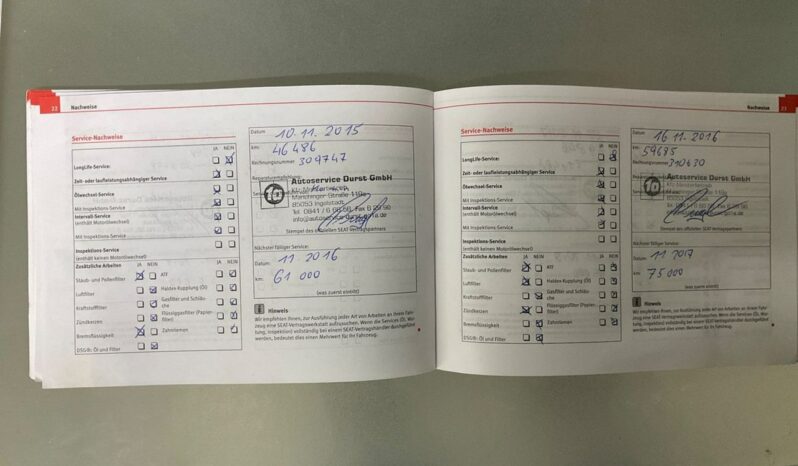 22 Nachweise
Service-Nachweise
JA NEIN
LongLife-Service:
Zeit- oder laufleistungsabhängiger Service
Ölwechsel-Service
Mit Inspektions-Service
Intervall-Service
(enthält Motorölwechsel)
Mit Inspektions-Service
Inspektions-Service
(enthält keinen Motorölwechsel)
Zusätzliche Arbeiten JA NEIN JA NEIN
Staub- und Pollenfilter ATF
Luftfilter Haldex-Kupplung (Öl)
Kraftstofffilter Gasfilter und Schläuche
Zündkerzen Flüssiggasfilter (Papierfilter)
Bremsflüssigkeit Zahnriemen
DSG®: Öl und Filter
Datum 10.11.2015
km: 46 486
Rechnungsnummer 309747
Reparaturempfehlung
Autoservice Durst GmbH
Kfz-Meisterbetrieb
Manchinger Straße 119a
85053 Ingolstadt
Stempel des offiziellen SEAT-Vertragspartners
Nächster fälliger Service:
Datum: 11.2016
km: 61 000
(was zuerst eintritt)
Hinweis
Wir empfehlen Ihnen, zur Ausführung jeder Art von Arbeiten an Ihrem Fahrzeug eine SEAT-Vertragswerkstatt aufzusuchen. Wenn die Services (Öl, Wartung, Inspektion) vollständig bei einem SEAT-Vertragshändler durchgeführt werden, bedeutet dies einen Mehrwert für Ihr Fahrzeug.
Nachweise 23
Service-Nachweise
JA NEIN
LongLife-Service:
Zeit- oder laufleistungsabhängiger Service
Ölwechsel-Service
Mit Inspektions-Service
Intervall-Service
(enthält Motorölwechsel)
Mit Inspektions-Service
Inspektions-Service
(enthält keinen Motorölwechsel)
Zusätzliche Arbeiten JA NEIN JA NEIN
Staub- und Pollenfilter ATF
Luftfilter Haldex-Kupplung (Öl)
Kraftstofffilter Gasfilter und Schläuche
Zündkerzen Flüssiggasfilter (Papierfilter)
Bremsflüssigkeit Zahnriemen
DSG®: Öl und Filter
Datum 16.11.2016
km: 59685
Rechnungsnummer
Autoservice Durst GmbH
Kfz-Meisterbetrieb
Manchinger Straße 119a
85053 Ingolstadt
Stempel des offiziellen SEAT-Vertragspartners
Nächster fälliger Service:
Datum: 11 2017
km: 75 000
(was zuerst eintritt)
Hinweis
Wir empfehlen Ihnen, zur Ausführung jeder Art von Arbeiten an Ihrem Fahrzeug eine SEAT-Vertragswerkstatt aufzusuchen. Wenn die Services (Öl, Wartung, Inspektion) vollständig bei einem SEAT-Vertragshändler durchgeführt werden, bedeutet dies einen Mehrwert für Ihr Fahrzeug.